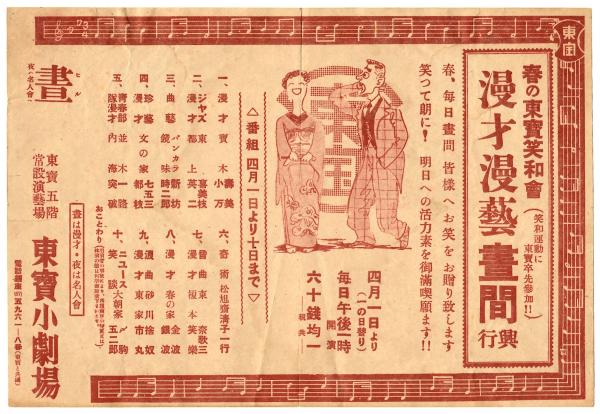 東宝
春の東寶笑和會
(笑和運動に
東寶卒先参加!!)
漫才漫藝晝間興行
春、毎日晝間 皆様へお笑をお贈り致します
笑つて朗に! 明日への活力素を御滿喫願ます!!
四月一日より
(一の日替り)
毎日午後一時
開演
六十錢均一
税共
東宝
△番組 四月一日より十日まで▽
一、漫才 寶木
壽美
小万
二、ジャズ漫才 東
都上
喜美枝
英二
三、曲藝 バンカラ新坊
鏡味時二郎
四、珍藝漫才 女の家
七五三
都枝
五、青春部隊漫才 並木一路
内海突破
六、奇術 松旭齋清子一行
七、音曲漫才 東
榎本
奈歌三
笑樂
八、漫才 春の家
金波
銀波
九、浪曲漫才 砂川捨奴
東家市丸
十、ニュース笑談 大朝家
〆駒
五二郎
おことわり
晝
ヒル
夜(名人會)
晝は漫才・夜は名人會
東寶五階
常設演藝場
東寶小劇場
電話銀座(57)五九六一―八番(東寶と共通)